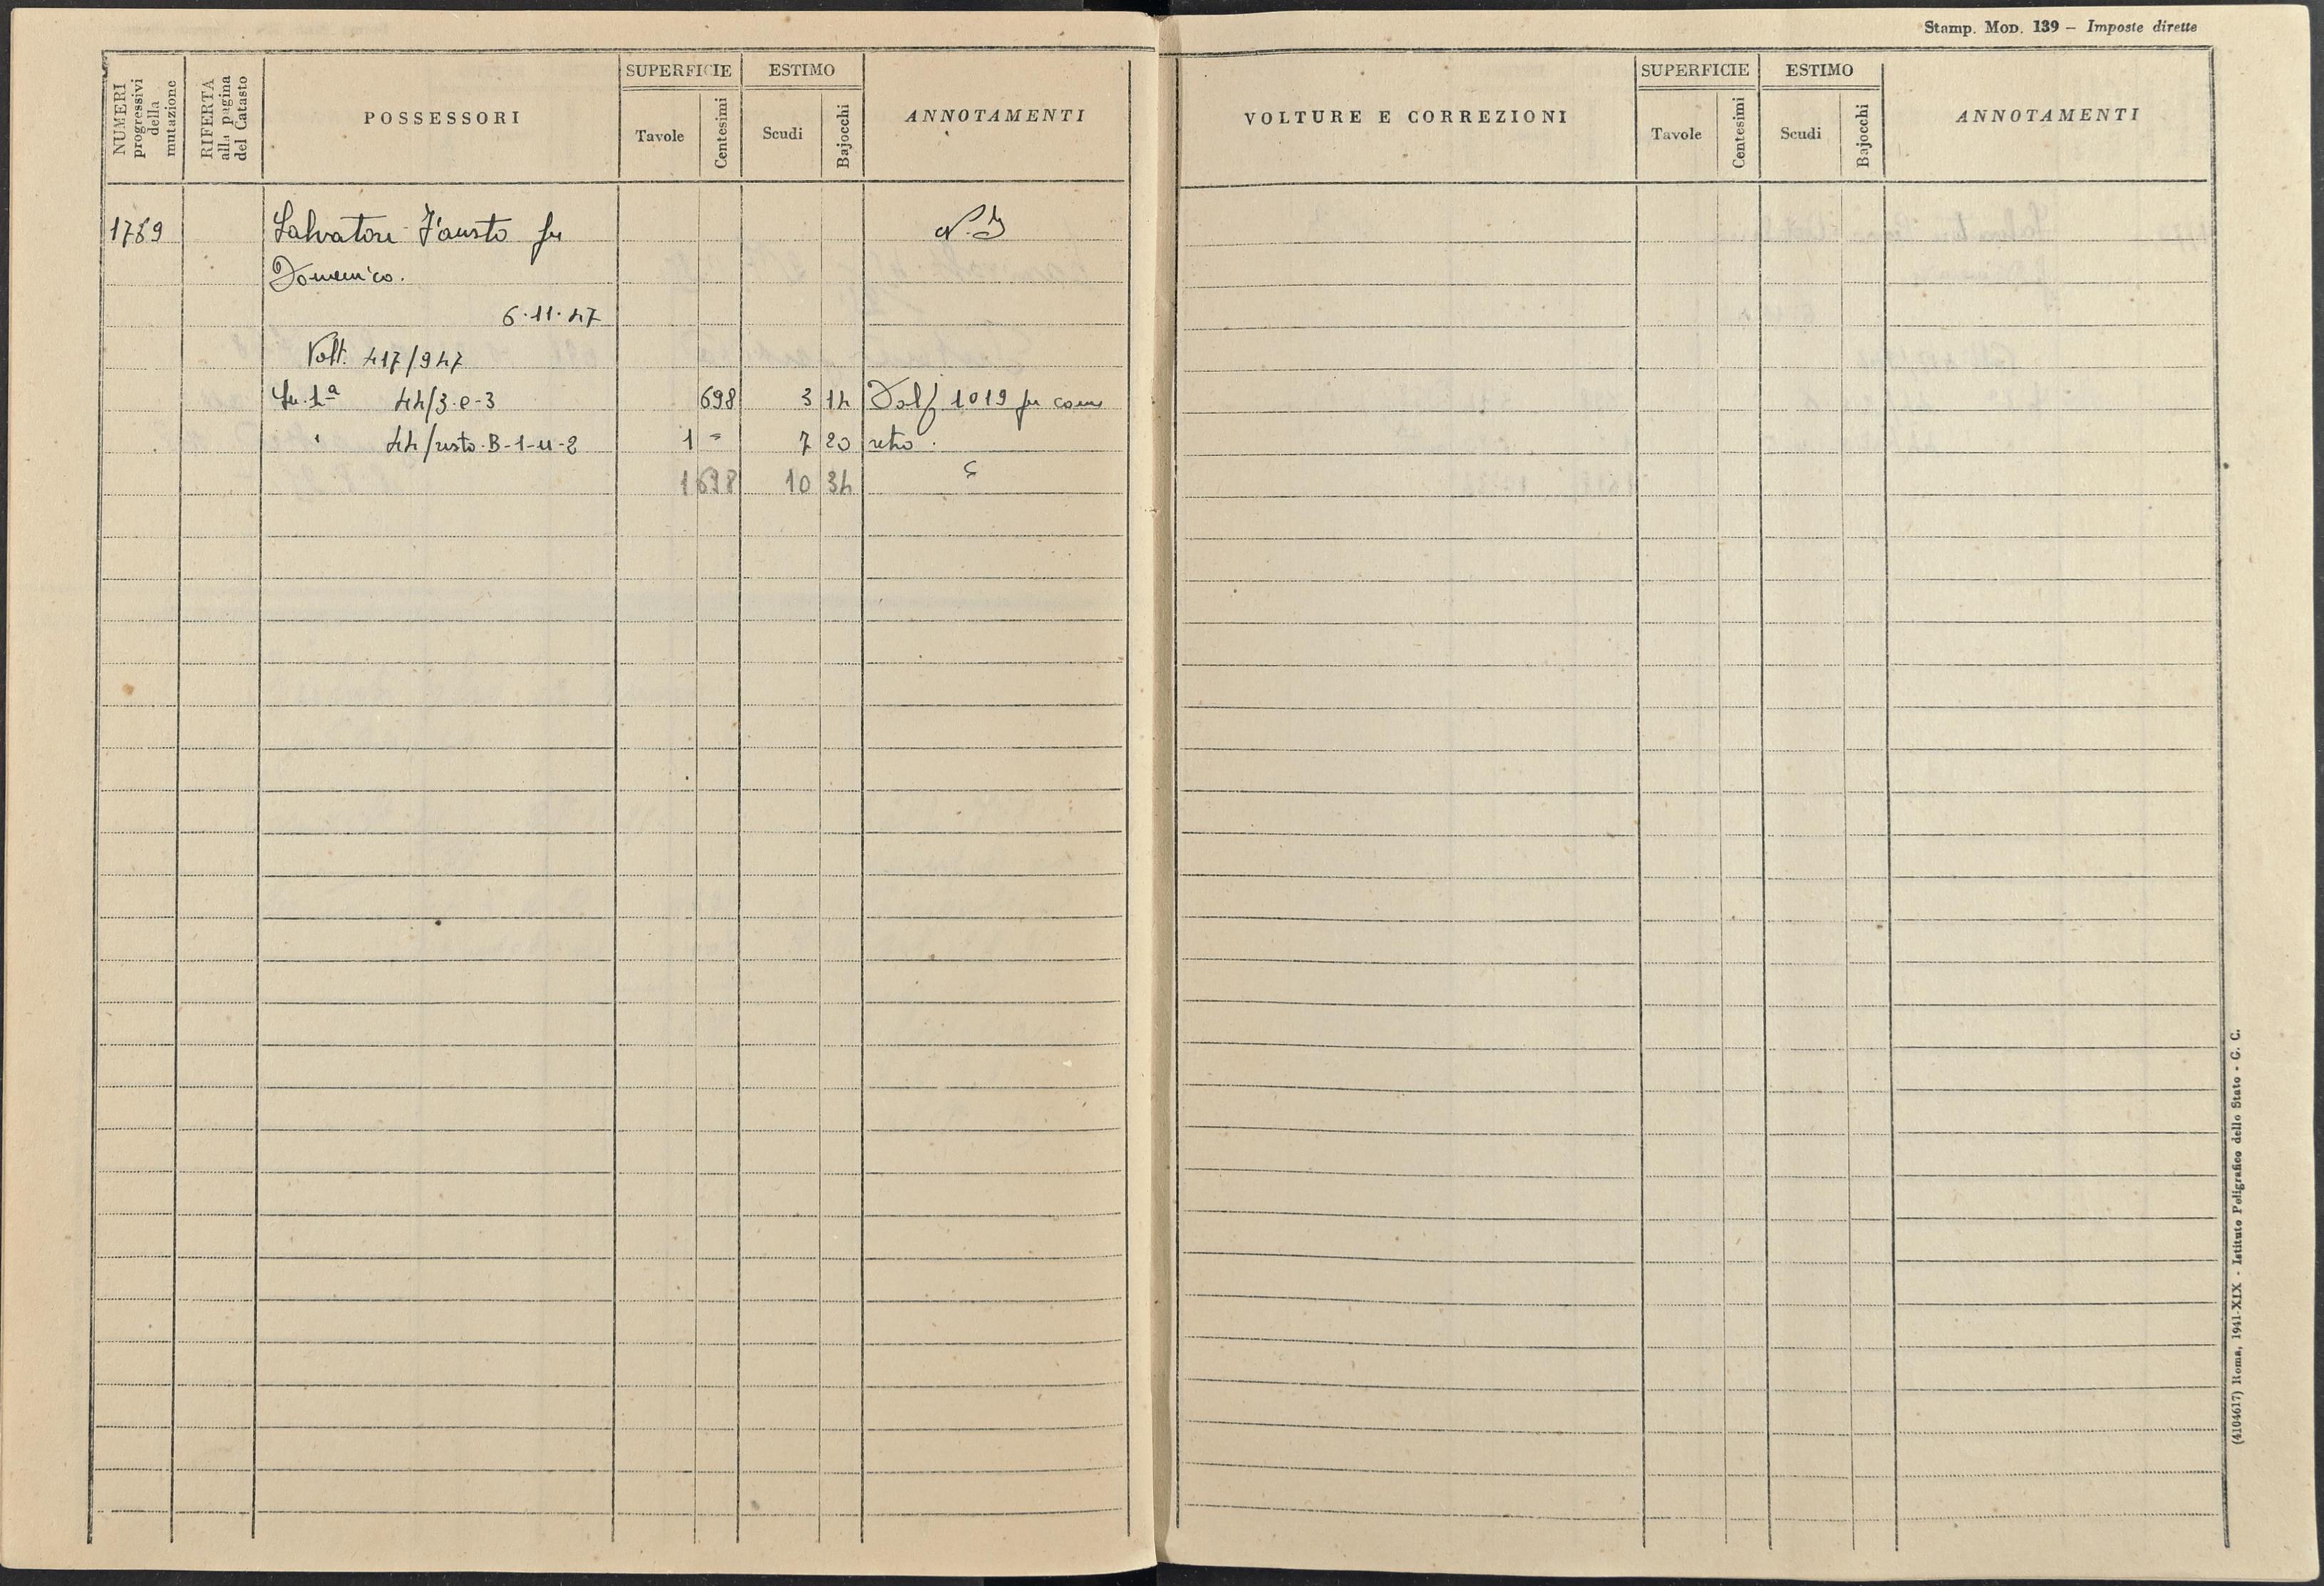 Stamp. Mod. 139 – Imposte dirette
NUMERI progressivi della mutazione
RIFERTA alla pagina del Catasto
POSSESSORI
SUPERFICIE
Tavole
Centesimi
ESTIMO
Scudi
Bajocchi
ANNOTAMENTI
VOLTURE E CORREZIONI
SUPERFICIE
Tavole
Centesimi
ESTIMO
Scudi
Bajocchi
ANNOTAMENTI
1769 Salvatori Fausto fu
Domenico.
6·11·47
Volt. 417/947
44/3·e-3 698 3 14 Dal f 1019 per come
44/resto·B-1-u-2 1 = 7 20 retro.
1 698 10 34
(4104617) Roma, 1941-XIX - Istituto Poligrafico dello Stato - G. C.